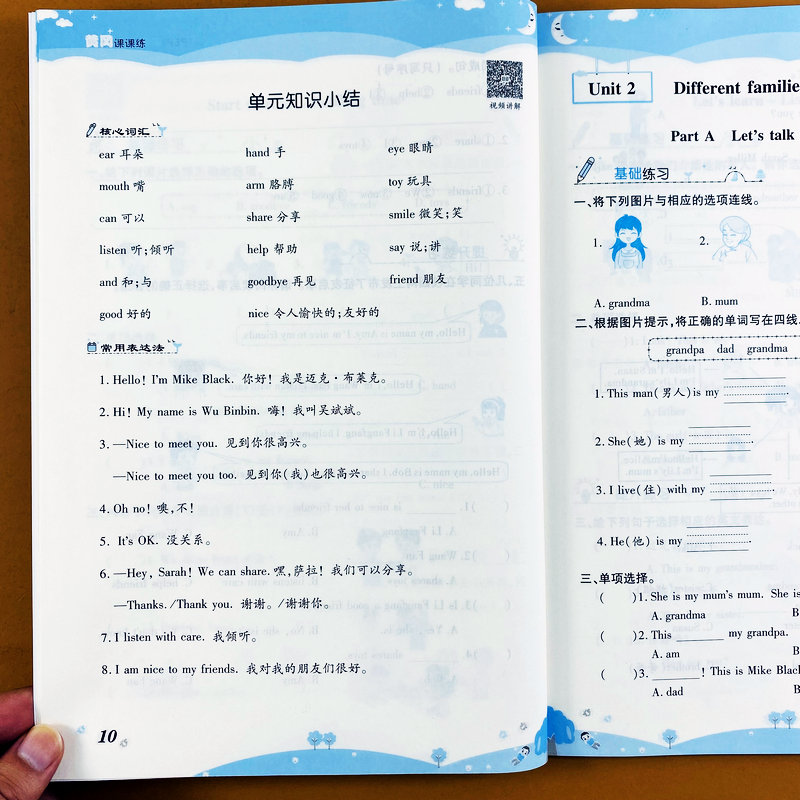 黄冈课课练
单元知识小结
视频讲解
核心词汇
ear 耳朵 hand 手 eye 眼睛
mouth 嘴 arm 胳膊 toy 玩具
can 可以 share 分享 smile 微笑;笑
listen 听;倾听 help 帮助 say 说;讲
and 和;与 goodbye 再见 friend 朋友
good 好的 nice 令人愉快的;友好的
常用表达法
1. Hello! I'm Mike Black. 你好! 我是迈克·布莱克。
2. Hi! My name is Wu Binbin. 嗨! 我叫吴斌斌。
3. —Nice to meet you. 见到你很高兴。
—Nice to meet you too. 见到你(我)也很高兴。
4. Oh no! 噢,不!
5. It's OK. 没关系。
6. —Hey, Sarah! We can share. 嘿,萨拉! 我们可以分享。
—Thanks. /Thank you. 谢谢。/谢谢你。
7. I listen with care. 我倾听。
8. I am nice to my friends. 我对我的朋友们很好。
10
Unit 2 Different familie
Part A Let's talk
基础练习
一、将下列图片与相应的选项连线。
1. 2.
A. grandma B. mum
二、根据图片提示,将正确的单词写在四线
grandpa dad grandma
1. This man(男人)is my .
2. She(她) is my .
3. I live(住) with my .
4. He(他) is my .
三、单项选择。
( )1. She is my mum's mum. She is
A. grandma B
( )2. This ______ my grandpa.
A. am B
( )3. ______! This is Mike Black
A. dad B